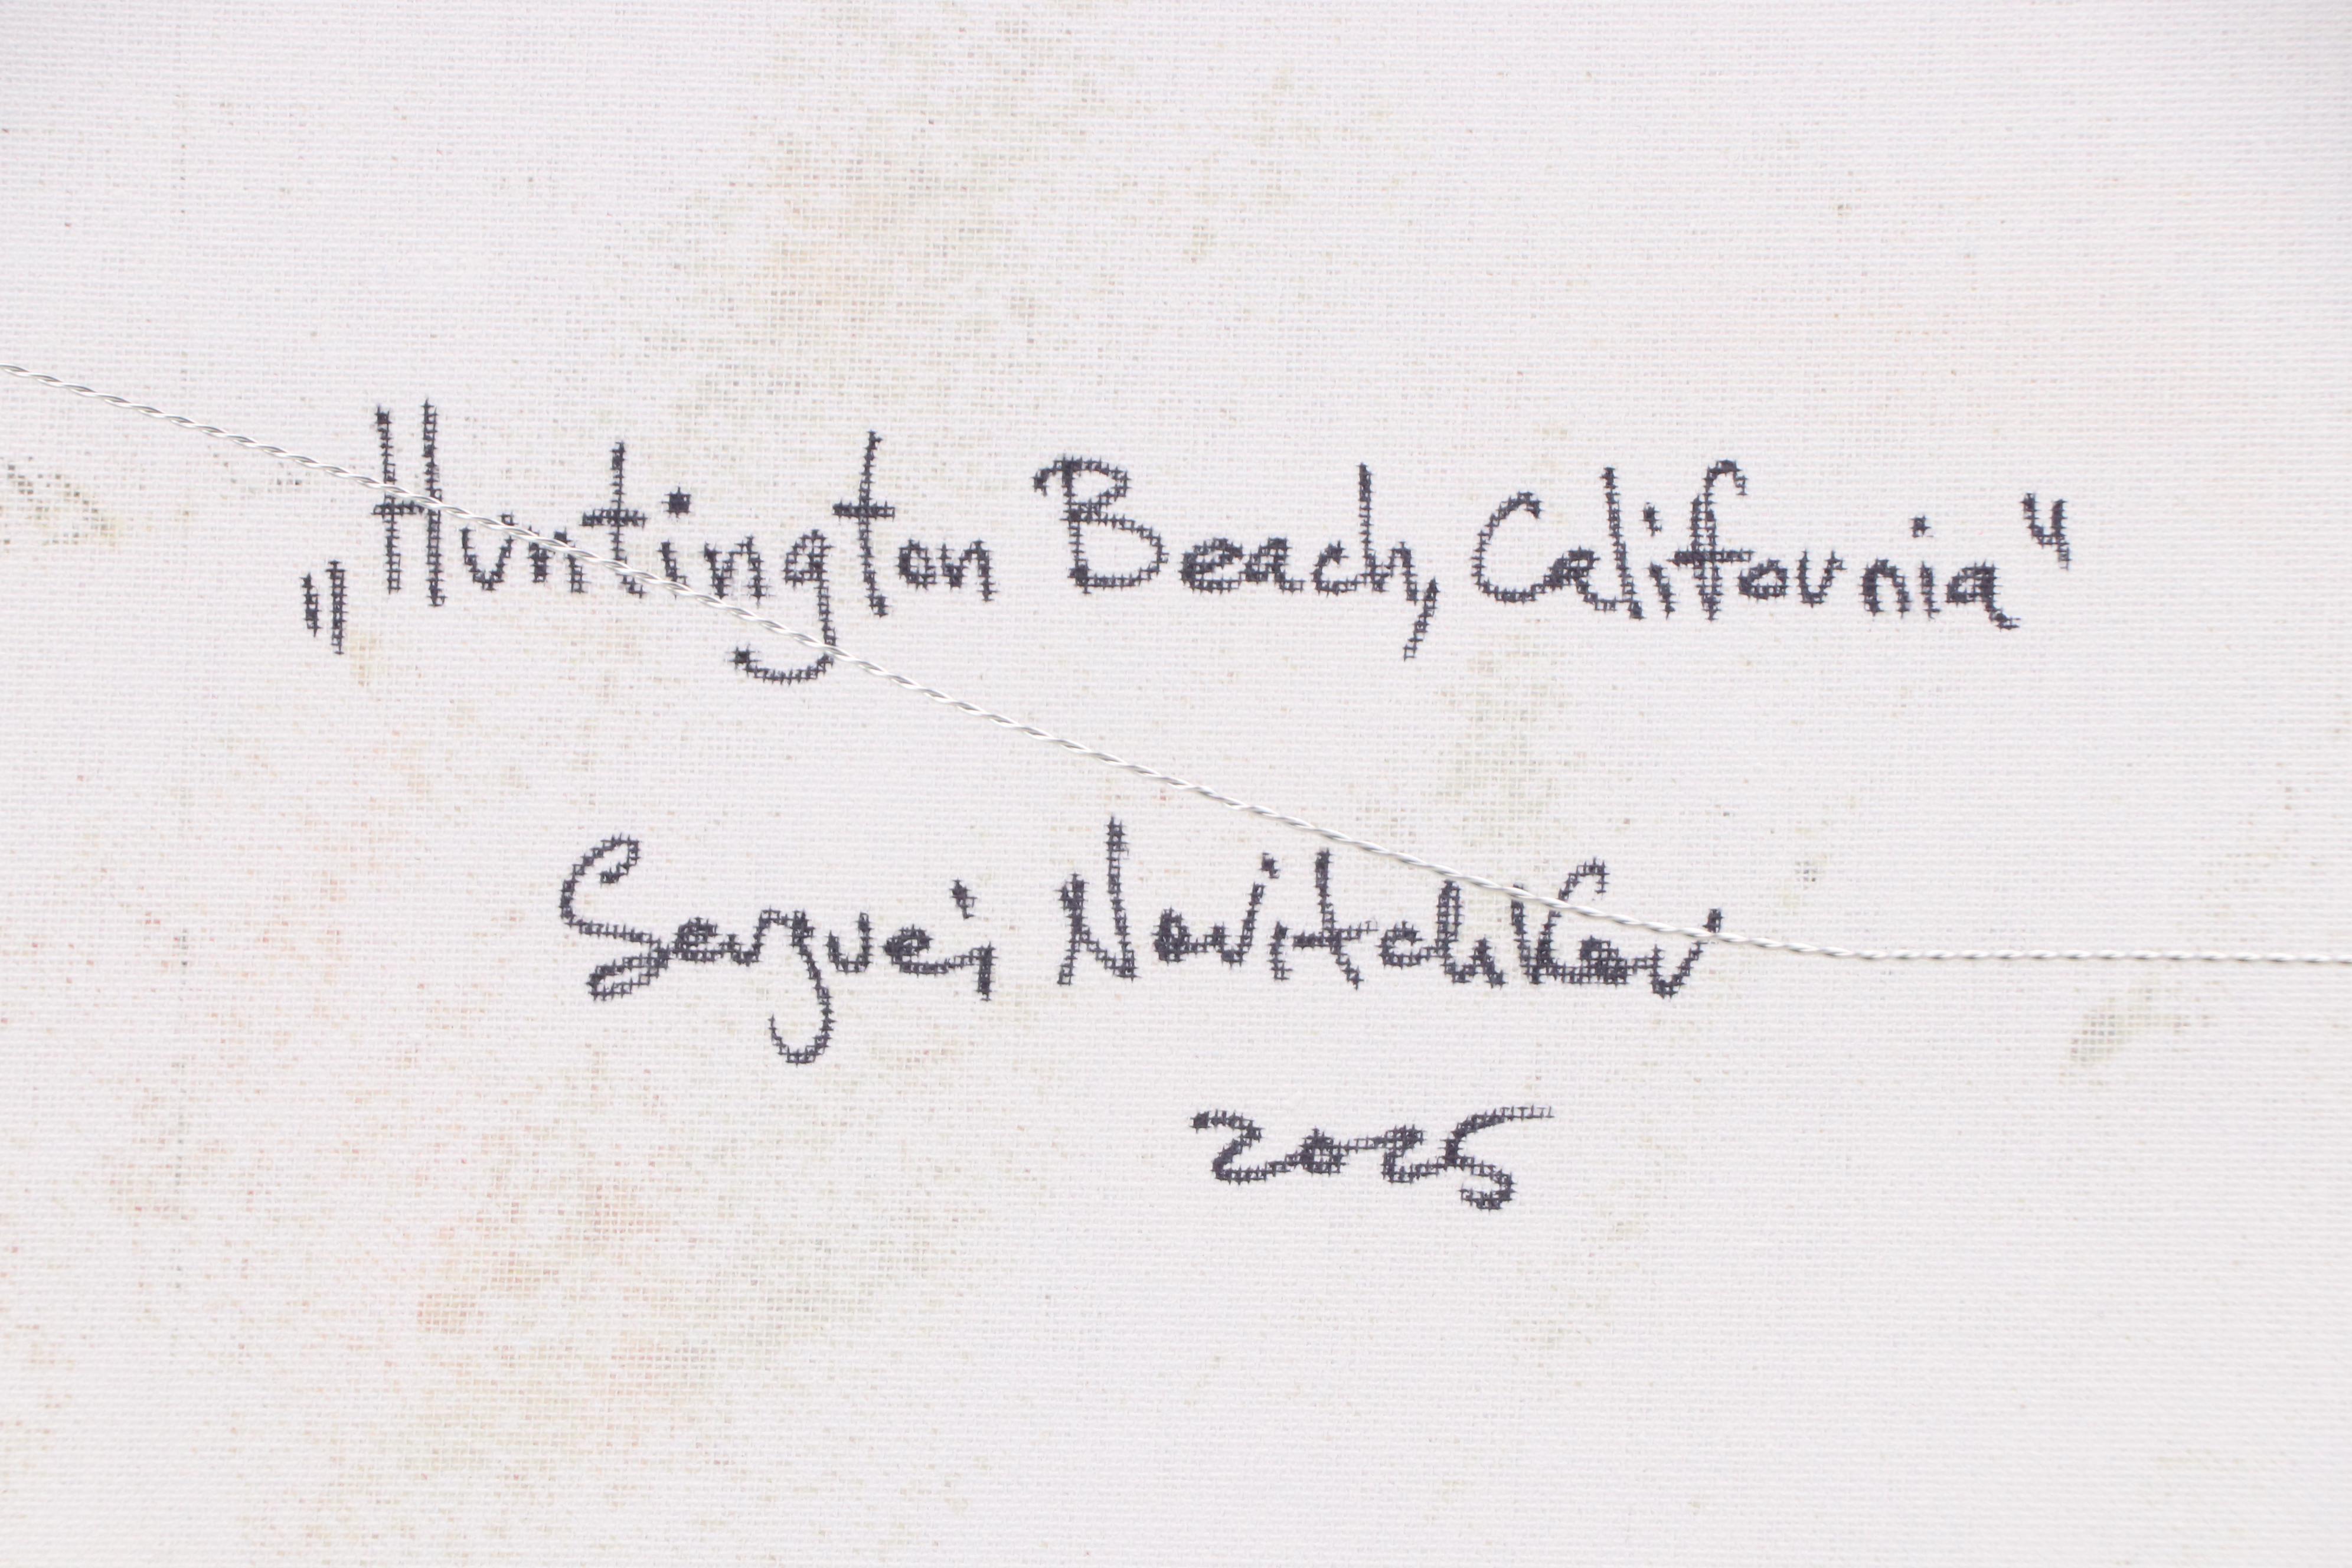 „Huntington Beach, California"
Serguei Novitchkov
2025